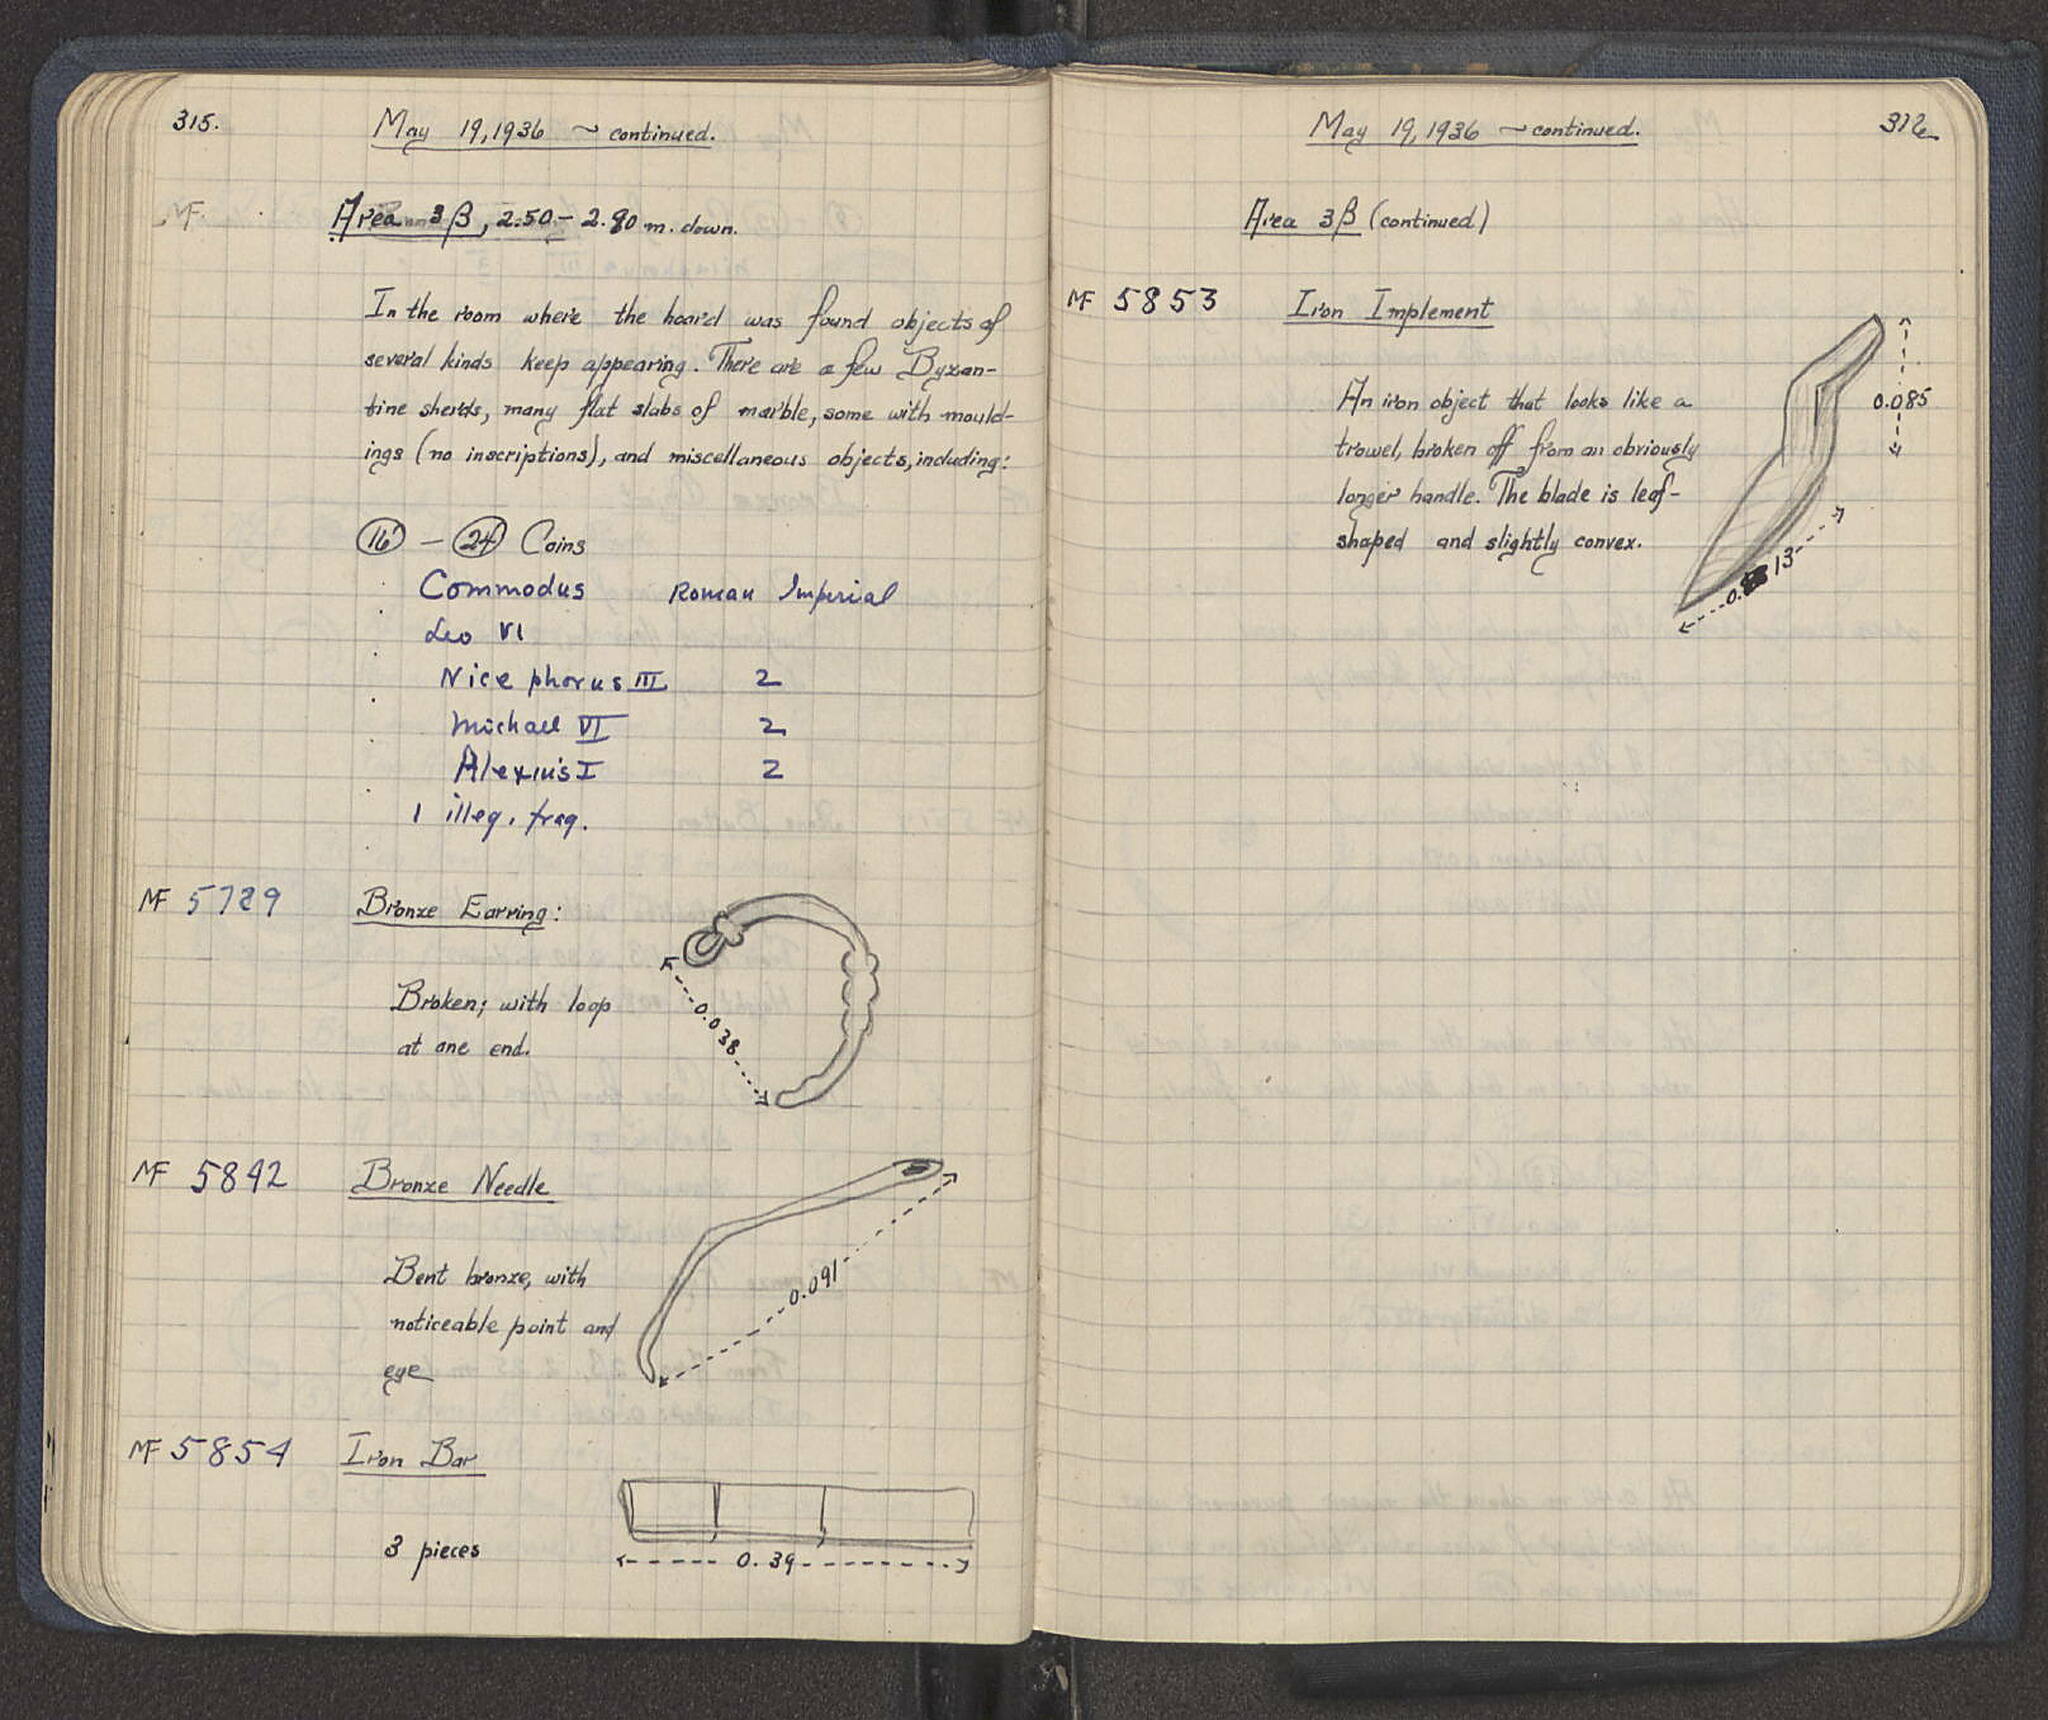 315.
May 19, 1936 ~ continued.
MF.
Area 3β, 2.50 – 2.80 m. down.
In the room where the hoard was found objects of
several kinds keep appearing. There are a few Byzan-
tine sherds, many flat slabs of marble, some with mould-
ings (no inscriptions), and miscellaneous objects, including:
16 – 24 Coins
Commodus Roman Imperial
Leo VI
Nicephorus III 2
Michael VI 2
Alexius I 2
1 illeg. frag.
MF 5729 Bronze Earring:
Broken; with loop
at one end.
0.038
MF 5842 Bronze Needle
Bent bronze, with
noticeable point and
eye
0.091
MF 5854 Iron Bar
3 pieces
0.39
May 19, 1936 ~ continued.
Area 3β (continued)
MF 5853 Iron Implement
An iron object that looks like a
trowel, broken off from an obviously
longer handle. The blade is leaf-
shaped and slightly convex.
0.085
0.13